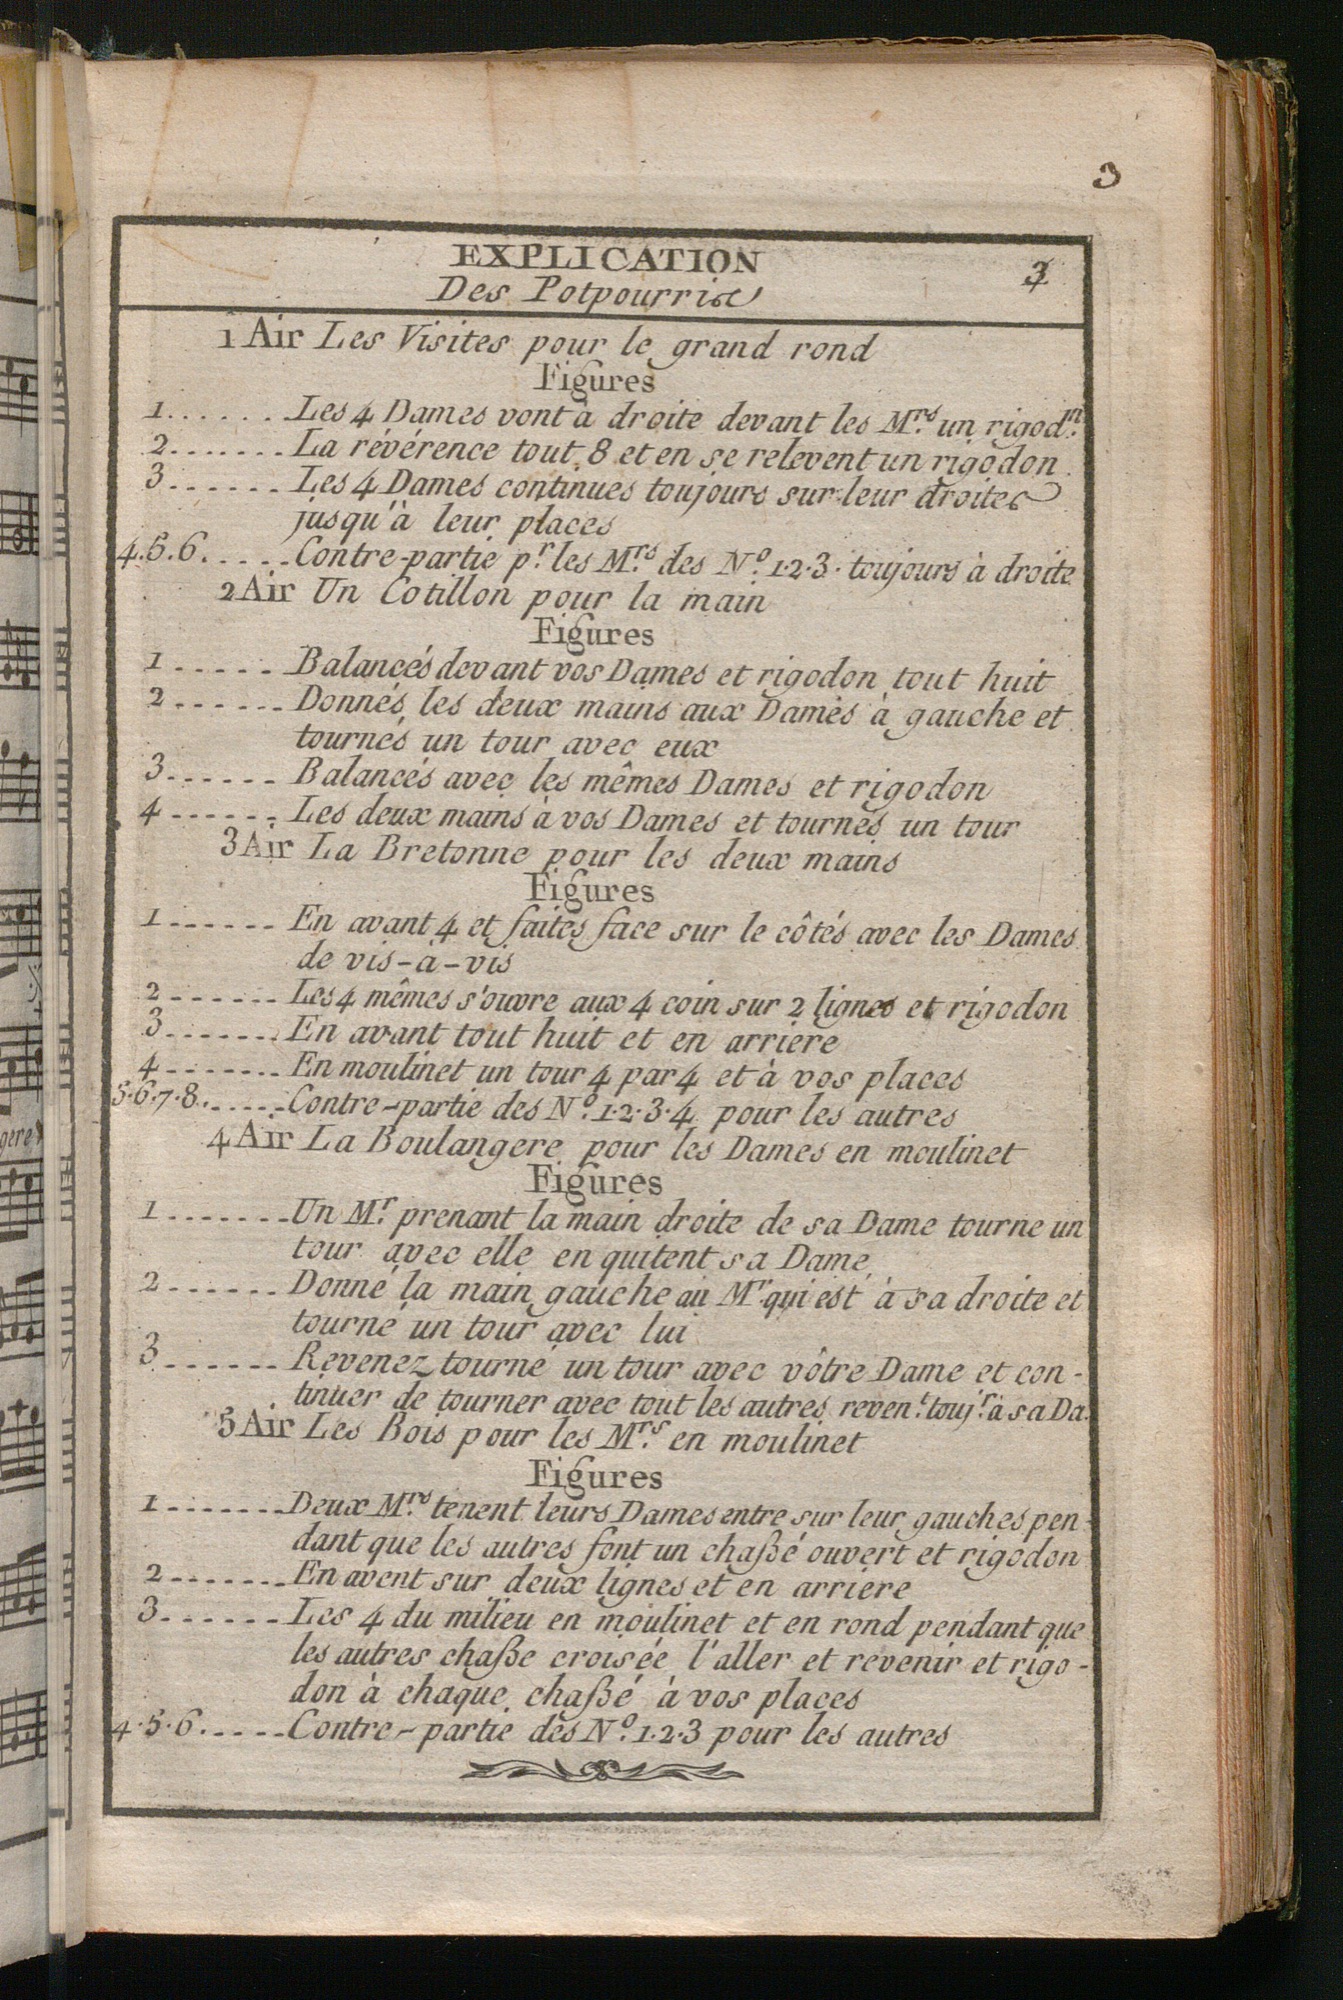 3
EXPLICATION
3
Des Potpourris
1 Air Les Visites pour le grand rond
Figures
1....... Les 4 Dames vont à droite devant les M.rs un rigod.n
2....... La révérence tout 8 et en se relevent un rigodon
3...... Les 4 Dames continues toujours sur leur droites
jusqu'à leur places
4.5.6..... Contre-partie p.r les M.rs des N.o 1.2.3. toujours à droite
2 Air Un Cotillon pour la main
Figures
1...... Balancés devant vos Dames et rigodon tout huit
2...... Donnés les deux mains aux Dames à gauche et
tournés un tour avec eux
3...... Balancés avec les mêmes Dames et rigodon
4...... Les deux mains à vos Dames et tournés un tour
3 Air La Bretonne pour les deux mains
Figures
1...... En avant 4 et faites face sur le côtés avec les Dames
de vis-à-vis
2...... Les 4 mêmes s'ouvre aux 4 coin sur 2 lignes et rigodon
3...... En avant tout huit et en arriere
4...... En moulinet un tour 4 par 4 et à vos places
5.6.7.8...... Contre-partie des N.o 1.2.3.4 pour les autres
4 Air La Boulangere pour les Dames en moulinet
gere
Figures
1....... Un M.r prenant la main droite de sa Dame tourne un
tour avec elle en quitent sa Dame
2...... Donné la main gauche au M.r qui est à sa droite et
tourné un tour avec lui
3...... Revenez tourné un tour avec vôtre Dame et con-
tinuer de tourner avec tout les autres reven.t touj.r à sa Da.
5 Air Les Bois pour les M.rs en moulinet
Figures
1....... Deux M.rs tenent leurs Dames entre sur leur gauches pen-
dant que les autres font un chaßé ouvert et rigodon
2....... En avent sur deux lignes et en arriere
3...... Les 4 du milieu en moulinet et en rond pendant que
les autres chaße croisée l'aller et revenir et rigo-
don à chaque chaßé à vos places
4.5.6..... Contre-partie des N.o 1.2.3 pour les autres